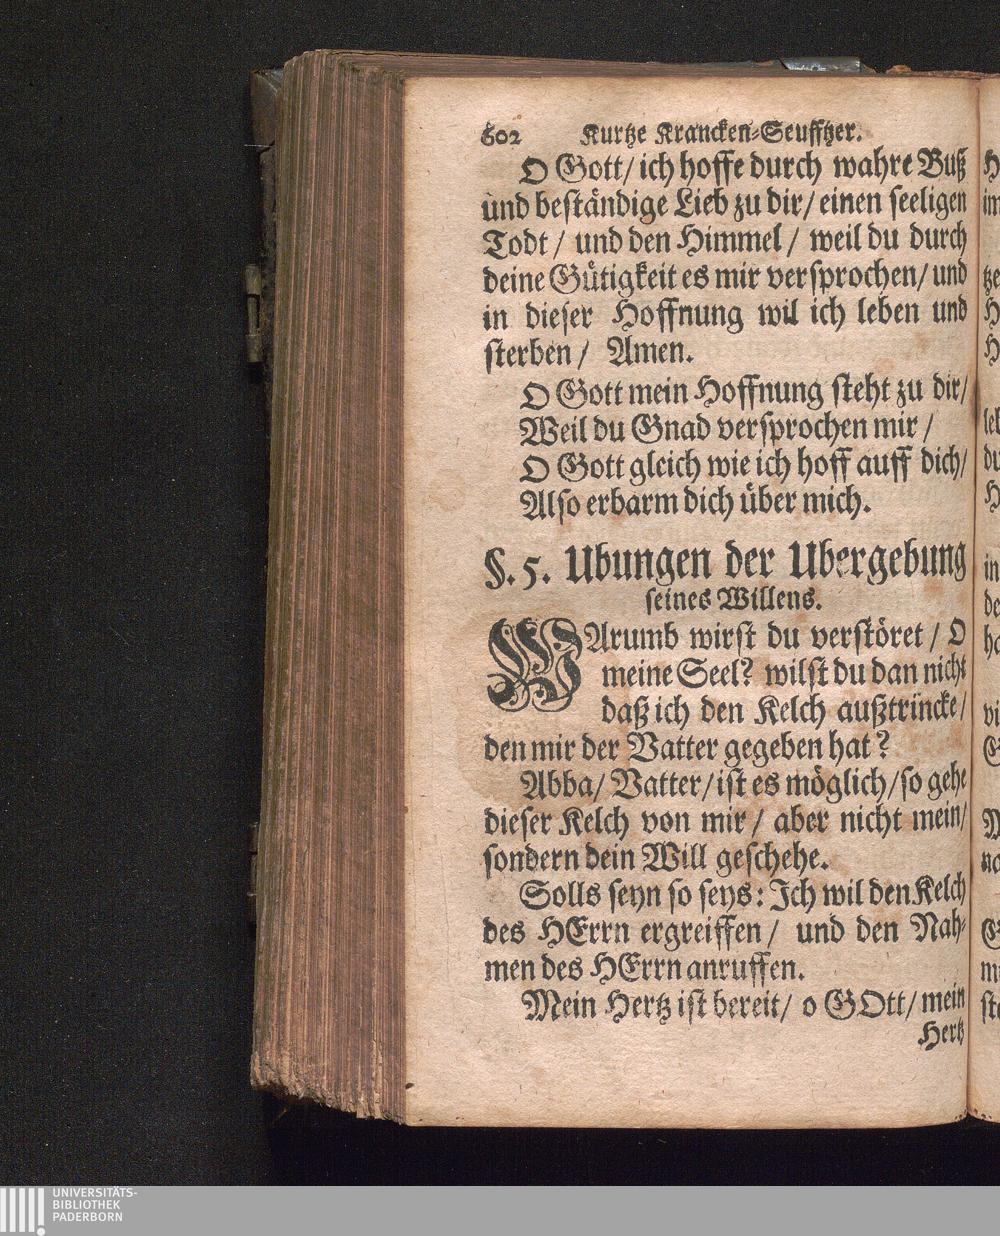 602 Kurtze Krancken-Seufftzer.
O Gott/ ich hoffe durch wahre Buß
und beständige Lieb zu dir/ einen seeligen
Todt/ und den Himmel/ weil du durch
deine Gütigkeit es mir versprochen/ und
in dieser Hoffnung wil ich leben und
sterben/ Amen.
O Gott mein Hoffnung steht zu dir/
Weil du Gnad versprochen mir/
O Gott gleich wie ich hoff auff dich/
Also erbarm dich über mich.
§. 5. Ubungen der Ubergebung
seines Willens.
WArumb wirst du verstöret/ O
meine Seel? wilst du dan nicht
daß ich den Kelch außtrincke/
den mir der Vatter gegeben hat?
Abba/ Vatter/ ist es möglich/ so gehe
dieser Kelch von mir/ aber nicht mein/
sondern dein Will geschehe.
Solls seyn so seys: Ich wil den Kelch
des HErrn ergreiffen/ und den Nah-
men des HErrn anruffen.
Mein Hertz ist bereit/ o GOtt/ mein
Hertz
UNIVERSITÄTS-
BIBLIOTHEK
PADERBORN